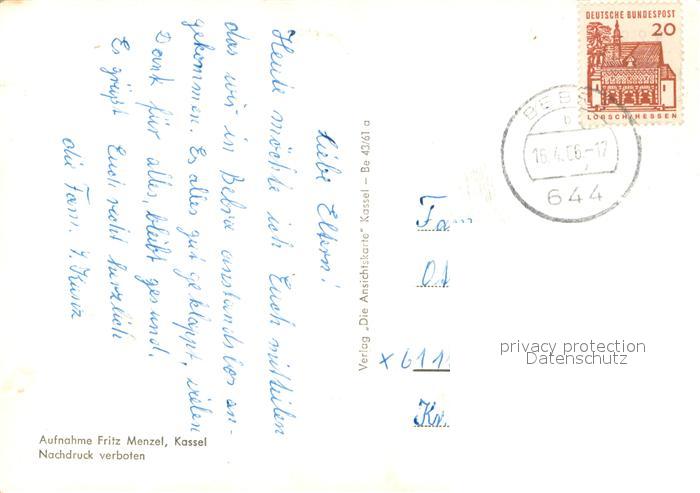 Liebe Eltern!
Heute möchte ich Euch mitteilen
das wir in Bebra anstandslos an-
gekommen. Es alles gut geklappt, vielen
Dank für alles, bleibt gesund.
Es grüßt Euch recht herzlich
die Fam.
Aufnahme Fritz Menzel, Kassel
Nachdruck verboten
Verlag „Die Ansichtskarte" Kassel – Be 43/61 a
DEUTSCHE BUNDESPOST
20
LORSCH/HESSEN
BEB
b
16.4.66.-17
644
Fam
x 611
privacy protection
Datenschutz
Kr